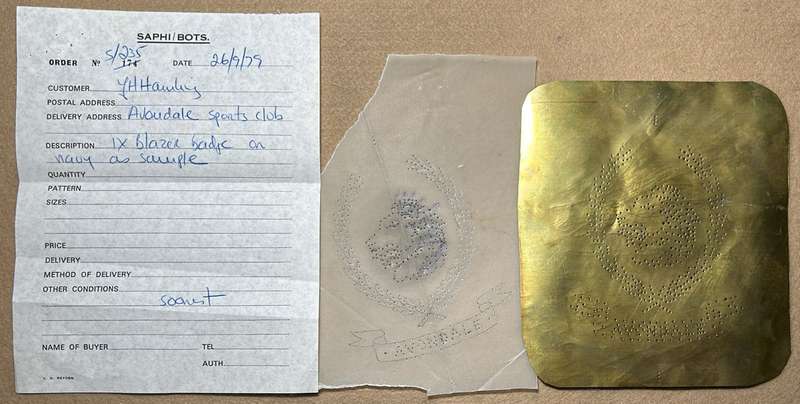 SAPHI/BOTS.
ORDER Nº S/235 174 DATE 26/9/79
CUSTOMER
POSTAL ADDRESS
DELIVERY ADDRESS Avondale sports club
DESCRIPTION 1X Blazer badge on
navy as sample
QUANTITY
PATTERN
SIZES
PRICE
DELIVERY
METHOD OF DELIVERY
OTHER CONDITIONS
soonest
NAME OF BUYER TEL
AUTH
AVONDALE